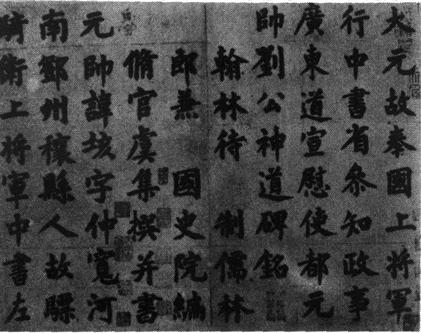 大元故奉國上將軍
行中書省叅知政事
廣東道宣慰使都元
帥劉公神道碑銘
翰林待制儒林
郎兼國史院編
脩官虞集撰并書
元帥諱垓字仲寬河
南鄧州穰縣人故驃
騎衛上將軍中書左